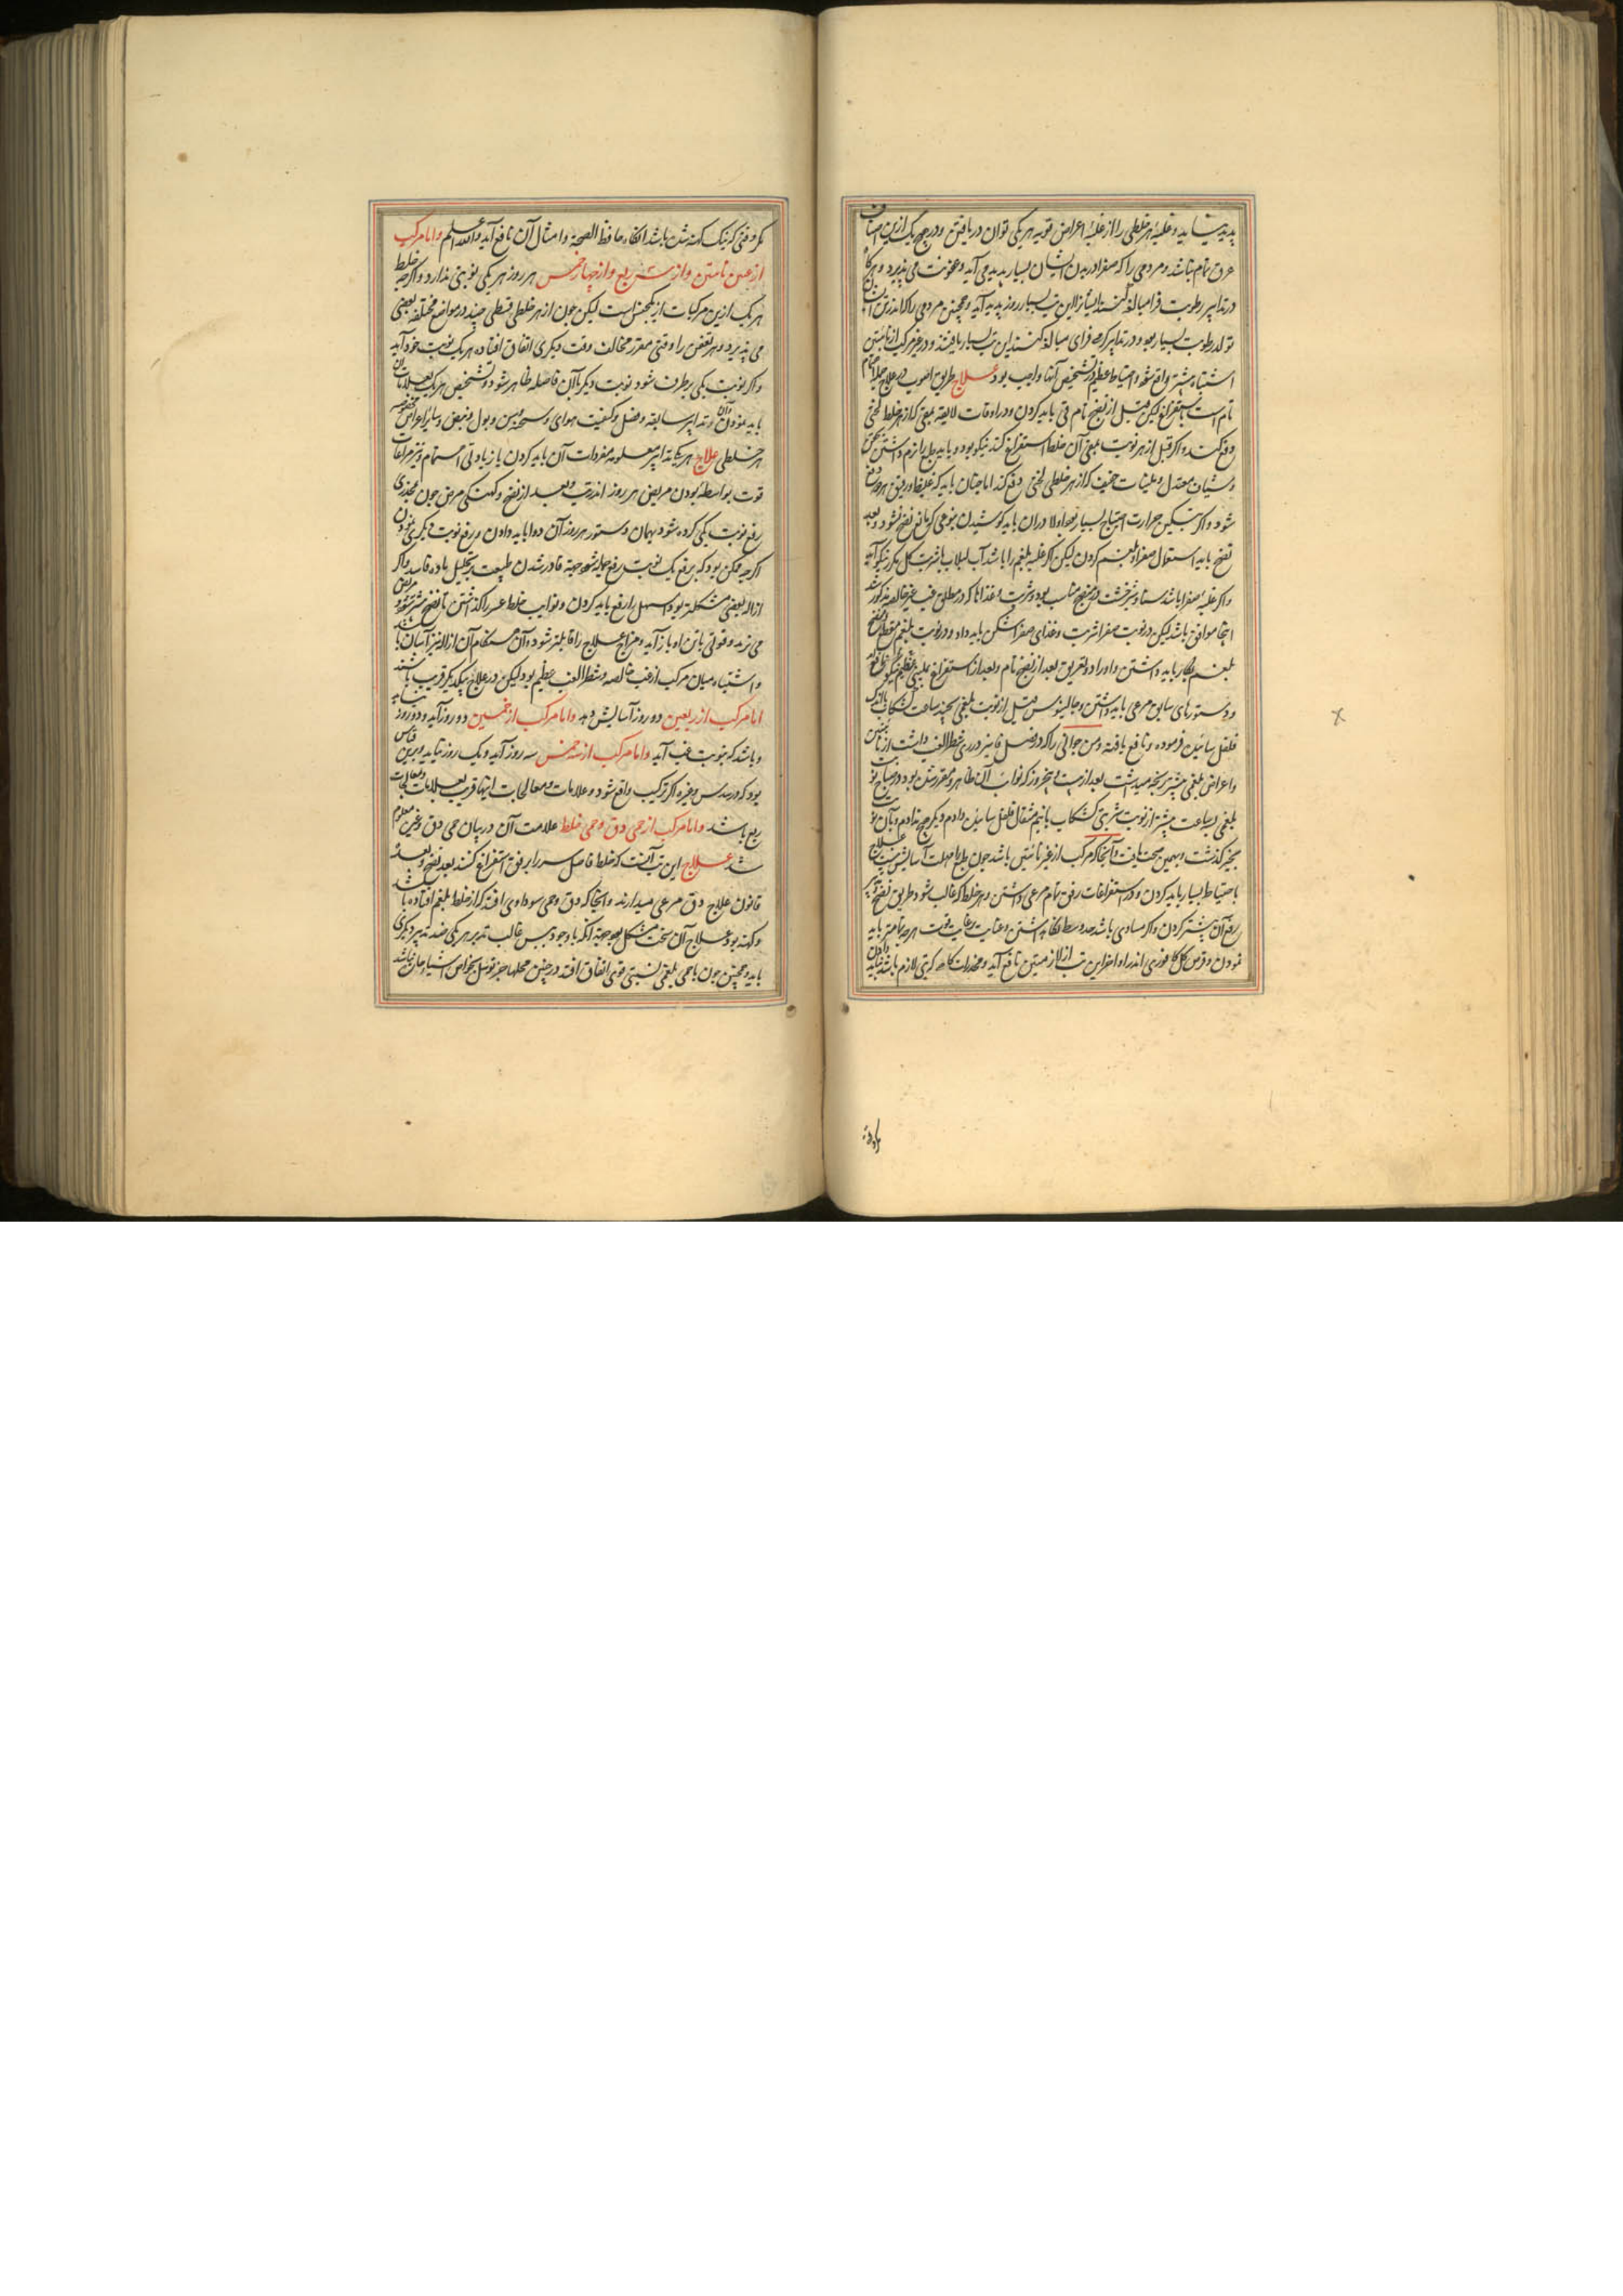 پدید نیاید و غلبهٔ هر خلطی را از غلبهٔ اعراض قویه هر یکی توان دریافتن و در هیچ یک ازین اصناف
عرق تمام نباشد و مردمی را که صفرا در بدن ایشان بسیار پدید می آید و عفونت می پذیرد و هرگاه
در تدابیر رطوبت فزا مبالغه کنند ایشانرا این تب بسیار روز پدید آید و همچنین مردمی را که اندر تن ایشان
تولد رطوبت بسیار بود و در تدابیر گرمی فزای مبالغه کنند این تب بسیار یابند و در غیر مرکب از نائبتین
اشتباه بیشتر واقع شود و احتیاط عظیم در تشخیص آنها واجب بود علاج طریق اصوب در علاج
تام است باستفراغ لیکن قبل از نضج تام قی باید کردن و در اوقات لایقه بقیی که از هر خلط لختی
دفع کنند و اگر قبل از هر نوبت بقیی آن خلط استفراغ کنند نیکو بود و باید طبع را نرم داشتن
و شیاف معتدل و ملینات خفیف که از هر خلطی لختی دفع کند اما چنان باید که غلیظ و رقیق هر دو دفع
شود و اگر بتسکین حرارت احتیاج بسیار بود اولا دران باید کوشیدن بنوعی که مانع نضج نشود و بعد
نضج باید اسهال صفرا و بلغم کردن لیکن اگر غلبه بلغم را باشد آب لبلاب با شربت کل مکرر نیکو آید
و اگر غلبه صفرا باشد سنا و شیرخشت در منضج مناسب بود و شربت و غذاها که در مطلق غب غیر خالصه مذکور شد
اینجا موافق باشد لیکن در نوبت صفرا شربت و غذای صفرا شکن باید داد و در نوبت بلغم مقطع و منضج
بلغم بکار باید داشتن و ادرار و تعریق بعد از نضج تام و بعد از استفراغ
و دستورهای سابق مرعی باید داشتن و جالینوس قبل از نوبت بلغمی بچند ساعت کشکاب با اندک
فلفل سائیده فرموده و نافع یافته و من جوانی را که در فصل پائیز در ری شطرالغب داشت از نائبتین
و اعراض بلغمی بیشتر رنجه میداشت بعد از بیست و پنج روز که نوائب آن ظاهر و مقرر شده بود در صباح نوبت
بلغمی سه ساعت پیشتر از نوبت شربتی کشکاب با نیم مثقال فلفل سائیده دادم دیگر هیچ ندادم و بآن نوبت
بخیر گذشت و بهمین صحت یافت و آنجا که مرکب از غیر نائبتین باشد چون طبع را مهلت آسایش نیست علاج
باحتیاط بسیار باید کردن و در استفراغات رفق تمام مرعی داشتن و هر خلط که غالب شود طریق نضج و تدبیر
رفع آن بیشتر کردن و اگر مساوی باشد حد وسط نگاه داشتن و عنایت برعایت قوت هر چه تمامتر باید
نمودن و قرص گل کافوری اندر اواخر این تب از لازمتین نافع آید و مخدرات گاه که تبی لازم باشد نباید دادن
مگر وقتی که نیک کهنه شده باشد انگاه حافظ الصحة و امثال آن نافع آید والله اعلم و اما مرکب
از غبین نائبتین و از سه ربع و از چهار خمس هر روز هر یکی نوبتی بدارد و اگرچه خلط
هر یک ازین مرکبات از یکجنس است لیکن چون از هر خلطی قسطی چند در مواضع مختلفه بعضی
می پذیرد و هر تعفن را وقتی مقرر مخالف وقت دیگری اتفاق افتاده هر یک نوبت خود آید
و اگر نوبت یکی برطرف شود نوبت دیگر با آن فاصله ظاهر شود و تشخیص هر یک بعلامات آن
باید نمودن و تدابیر سابقه و فصل و کیفیت هوای و سحنه و سن و بول و نبض و سائر اعراض مخصوصه
هر خلطی علاج هر یک بتدابیر معلومه مفردات آن باید کردن با زیادتی اهتمام و نیز مراعات
قوت بواسطهٔ بودن مریض هر روز اندر تب و بعد از نضج و کهنگی مرض چون بمخدری
رفع نوبت یکی کرده شود بهمان دستور هر روز آن دوا باید دادن و رفع نوبت دیگری نمودن
اگرچه ممکن بود که برفع یک نوبت رفع جمله شود جهة قادر شدن طبیعت بتحلیل ماده فاسد و اگر
ازاله بعضی مشکلتر بود اسهل را رفع باید کردن و نوایب خلط عسر را گذاشتن تا نضج بیشتر شود و مرض
می زند و قوتی با تن او باز آید و مزاج علاج را قابلتر شود و آن هنگام آن ازاله نیز آسان باشد
و اشتباه میان مرکب از غب خالصه و شطرالغب عظیم بود لیکن در علاج بیکدیگر قریب باشند
اما مرکب از ربعین دو روز آسایش دهد و اما مرکب از خمسین دو روز آید و دو روز نیاید
و باشد که بنوبت غب آید و اما مرکب از سه خمس سه روز آید و یک روز نیاید و برین قیاس
بود که در سدس و غیره اگر ترکیب واقع شود و علامات و معالجات اینها قریب بعلامات و معالجات
ربع باشد و اما مرکب از حمی دق و حمی خلط علامت آن در بیان حمی دق و غیره معلوم
شد علاج این تب آنست که خلط فاضل را برفق استفراغ کنند بعد نضج و بعده
قانون علاج دق مرعی میدارند و انجا که دق و حمی سوداوی افتد که از خلط بلغم افتاده باشد
و کهنه بود علاج آن سخت مشکل بود جهة آنکه با وجود یبس غالب تدبیر هر یکی ضد تدبیر دیگری
باید و همچنین چون با حمی بلغمی تشنجی قوی اتفاق افتد در چنین محلها جز توسل بخواص اشیا درمان نباشد